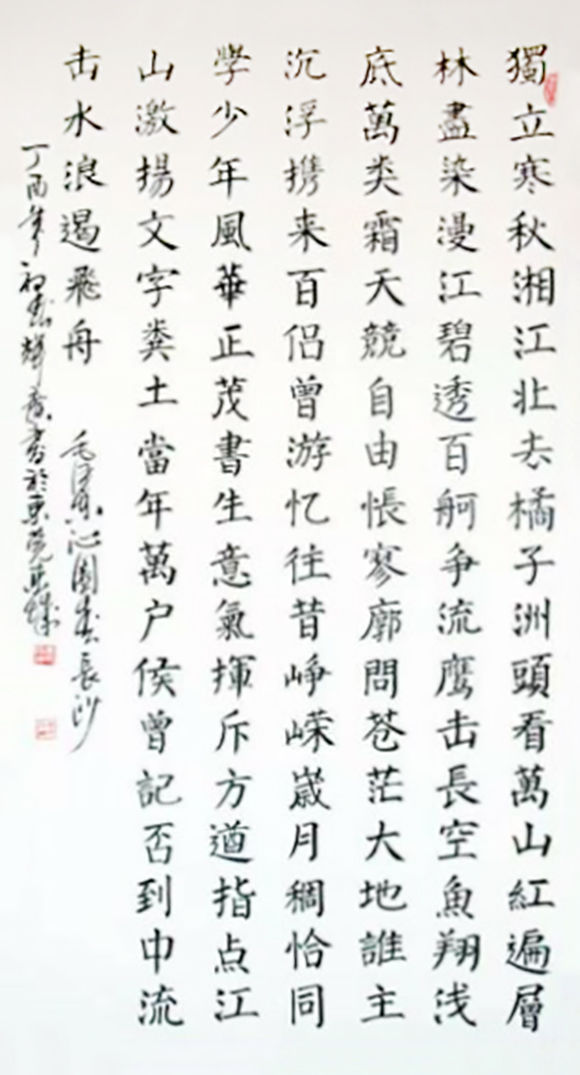 獨立寒秋湘江北去橘子洲頭看萬山紅遍層
林盡染漫江碧透百舸争流鹰击長空魚翔浅
底萬类霜天競自由悵寥廓問苍茫大地誰主
沉浮携来百侣曾游忆往昔峥嵘歲月稠恰同
學少年風華正茂書生意氣揮斥方遒指点江
山激揚文字粪土當年萬户侯曾記否到中流
击水浪遏飛舟
毛泽东沁園春長沙
丁酉年初春輝書於東莞東城